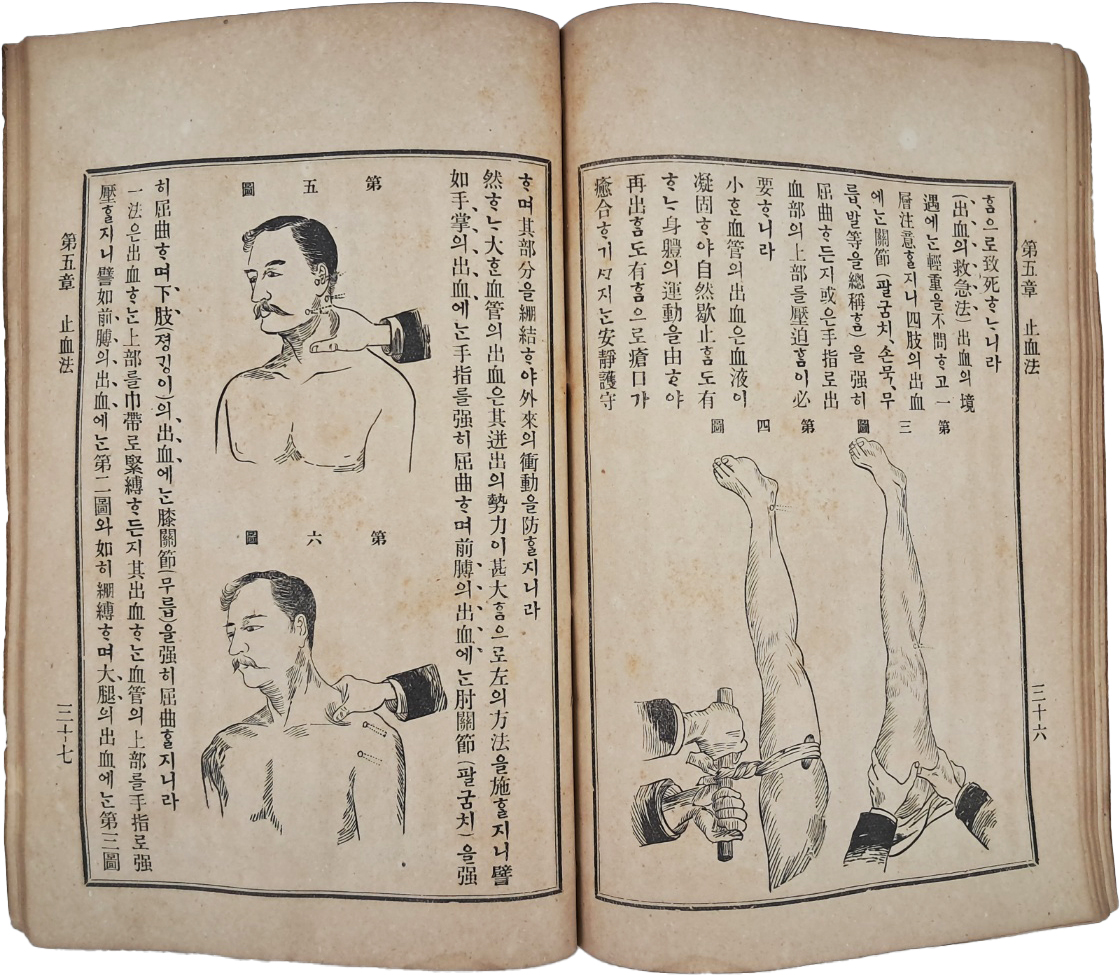 第五章 止血法 三十六
ᄒᆞᆷ으로致死ᄒᆞᄂᆞ니라
(出血의救急法)出血의境
遇에ᄂᆞᆫ輕重을不問ᄒᆞ고一
層注意ᄒᆞᆯ지니四肢의出血
에ᄂᆞᆫ關節(팔굼치、손목、무
릅、발等을總稱ᄒᆞᆷ)을强히
屈曲ᄒᆞ든지或은手指로出
血部의上部를壓迫ᄒᆞᆷ이必
要ᄒᆞ니라
小ᄒᆞᆫ血管의出血은血液이
凝固ᄒᆞ야自然歇止ᄒᆞᆷ도有
ᄒᆞᄂᆞ身體의運動을由ᄒᆞ야
再出ᄒᆞᆷ도有ᄒᆞᆷ으로瘡口가
癒合ᄒᆞ기ᄭᆞ지ᄂᆞᆫ安靜護守
第三圖
第四圖
ᄒᆞ며其部分을繃結ᄒᆞ야外來의衝動을防ᄒᆞᆯ지니라
然ᄒᆞᄂᆞ大ᄒᆞᆫ血管의出血은其迸出의勢力이甚大ᄒᆞᆷ으로左의方法을施ᄒᆞᆯ지니譬
如手掌의出血에ᄂᆞᆫ手指를强히屈曲ᄒᆞ며前膊의出血에ᄂᆞᆫ肘關節(팔굼치)을强
第五圖
第六圖
히屈曲ᄒᆞ며下肢(졍깅이)의出血에ᄂᆞᆫ膝關節(무릅)을强히屈曲ᄒᆞᆯ지니라
一法은出血ᄒᆞᄂᆞᆫ上部를巾帶로緊縛ᄒᆞ든지其出血ᄒᆞᄂᆞᆫ血管의上部를手指로强
壓ᄒᆞᆯ지니譬如前膊의出血에ᄂᆞᆫ第二圖와如히繃縛ᄒᆞ며大腿의出血에ᄂᆞᆫ第三圖
第五章 止血法 三十七